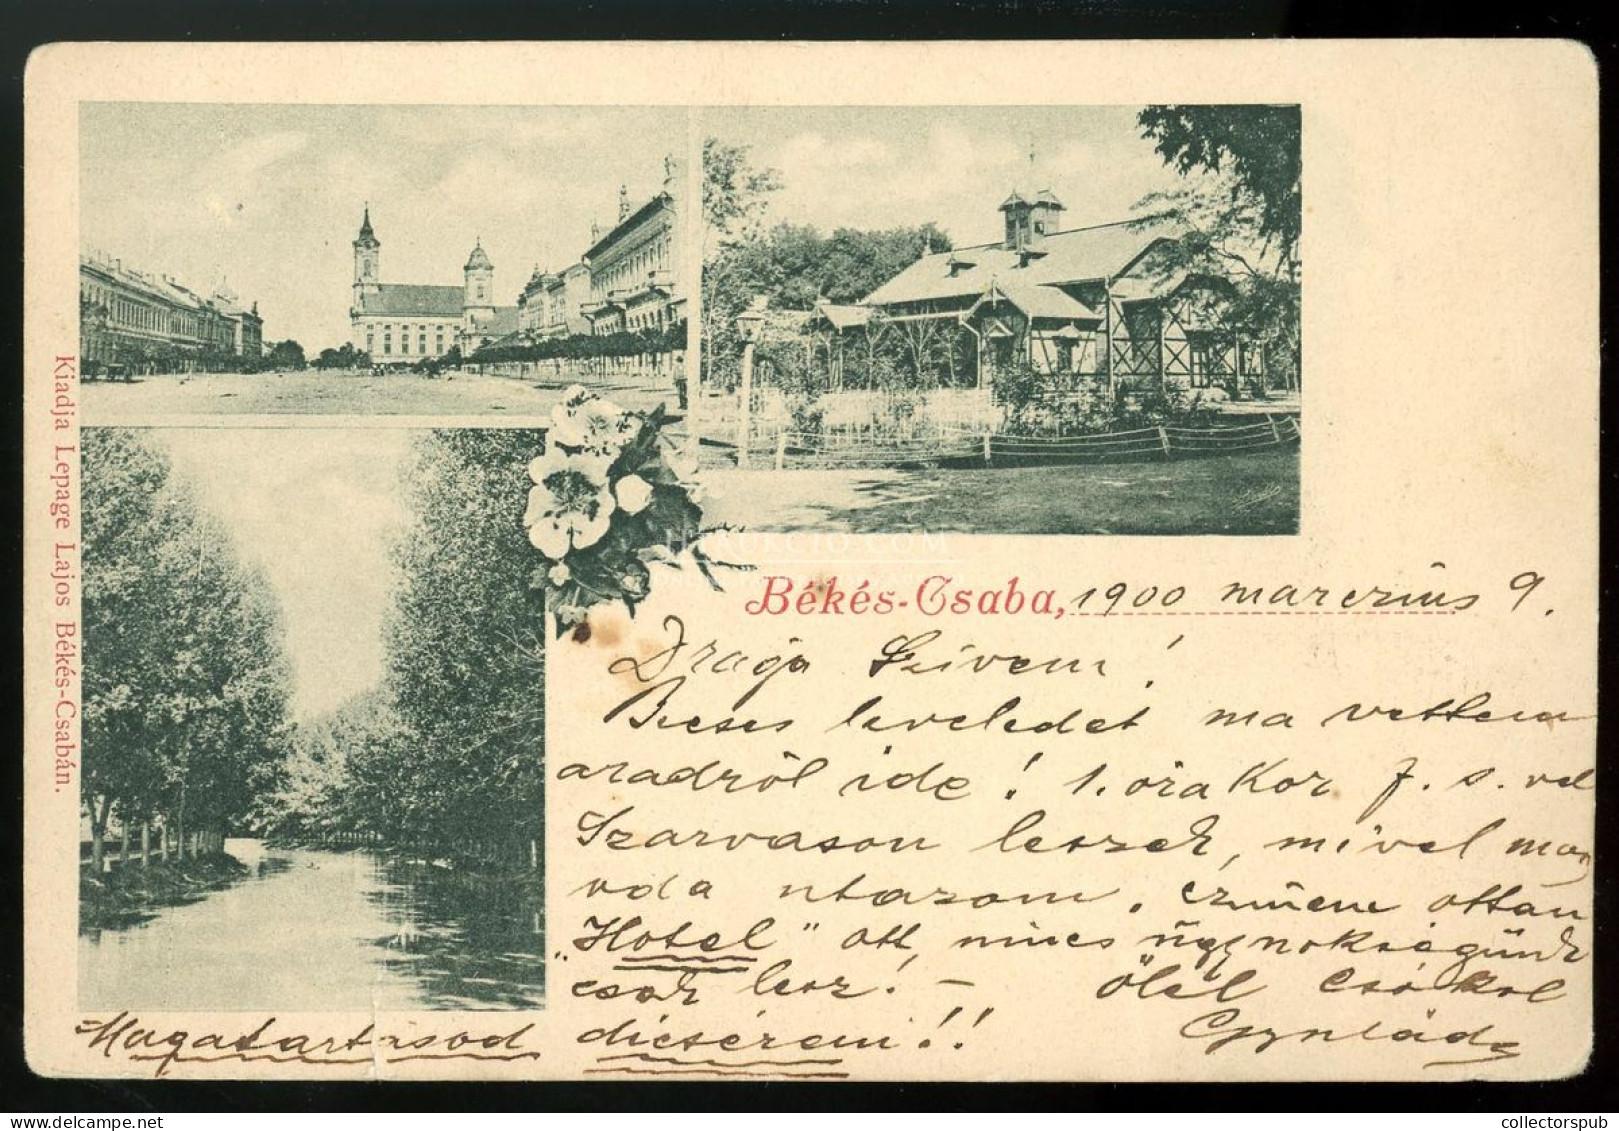 Kiadja Lepage Lajos Békés-Csabán.
HUNGARICIO.COM
Békés-Csaba, 1900 marczius 9.
Drága Szivem!
Becses leveledet ma vettem
aradról ide! 1. óra kor f. s. vel
Szarvason leszek, mivel
oda utazom, czimem ottan
„Hotel" ott nincs ügynökségünk
csak lesz! – Ölel csókol
Magatartásod dicsérem!!
collectorspub